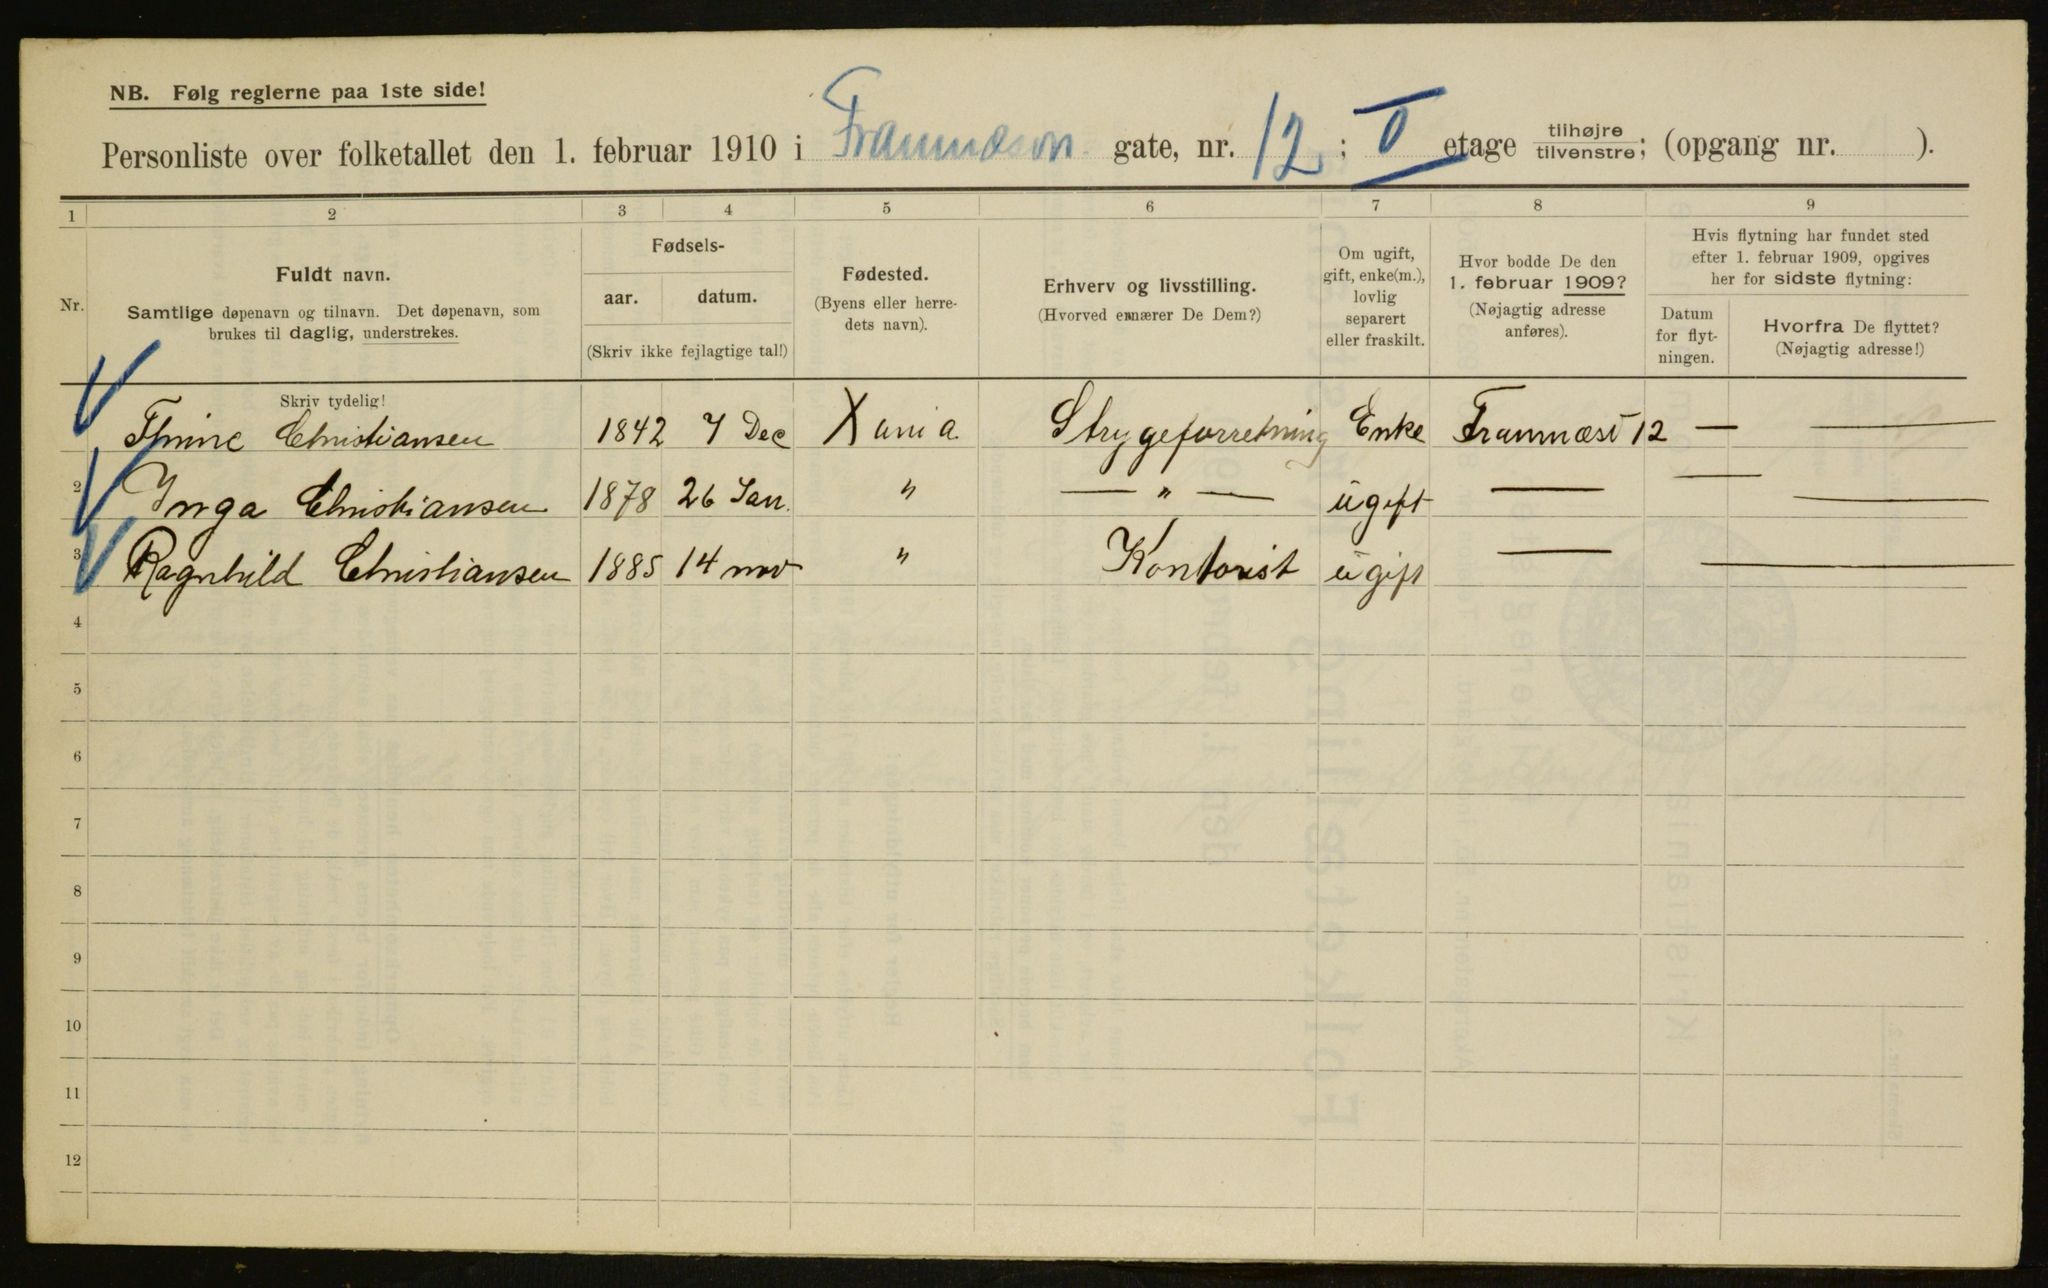 NB. Følg reglerne paa 1ste side!
Personliste over folketallet den 1. februar 1910 i Framnæsvn gate, nr. 12 ; II etage tilhøjre/tilvenstre; (opgang nr. ).
1 2 3 4 5 6 7 8 9
Nr.
Fuldt navn.
Samtlige døpenavn og tilnavn. Det døpenavn, som
brukes til daglig, understrekes.
Skriv tydelig!
Fødsels-
aar. datum.
(Skriv ikke fejlagtige tal!)
Fødested.
(Byens eller herre-
dets navn).
Erhverv og livsstilling.
(Hvorved ernærer De Dem?)
Om ugift,
gift, enke(m.),
lovlig
separert
eller fraskilt.
Hvor bodde De den
1. februar 1909?
(Nøjagtig adresse
anføres).
Hvis flytning har fundet sted
efter 1. februar 1909, opgives
her for sidste flytning:
Datum
for flyt-
ningen.
Hvorfra De flyttet?
(Nøjagtig adresse!)
Thine Christiansen 1842 7 Dec Xania Strygeforretning Enke Framnæsv 12 — —
2 Inga Christiansen 1878 26 Jan. " — " — ugift — — —
3 Ragnhild Christiansen 1885 14 nov " Kontorist ugift — —
4
5
6
7
8
9
10
11
12